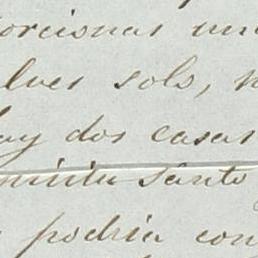 orcionar un
lver solo, n
hay dos casas
piritu Santo
podria con